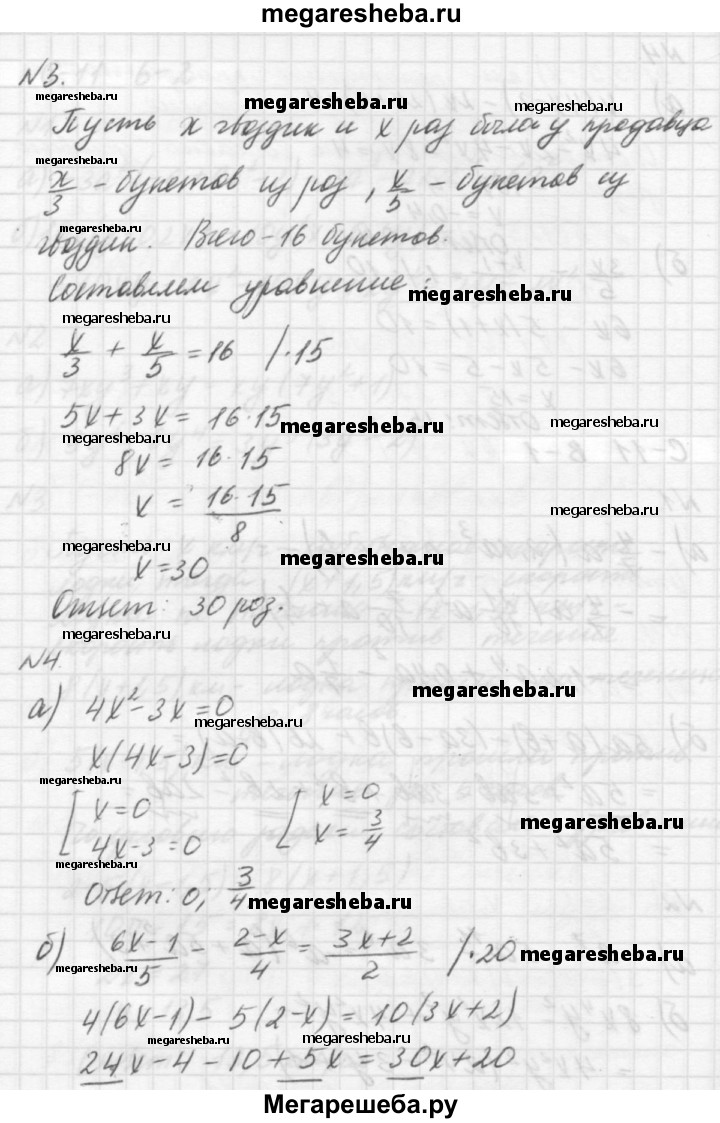 megaresheba.ru
N3.
megaresheba.ru megaresheba.ru megaresheba.ru
Пусть x гвоздик и x роз было у продавца
megaresheba.ru
x/3 - букетов из роз, x/5 - букетов из
megaresheba.ru
гвоздик. Всего - 16 букетов.
Составляем уравнение:
megaresheba.ru
megaresheba.ru
x/3 + x/5 = 16 /·15
5x + 3x = 16·15
megaresheba.ru megaresheba.ru
megaresheba.ru
8x = 16·15
x = 16·15/8
megaresheba.ru
megaresheba.ru megaresheba.ru
x = 30
Ответ: 30 роз.
megaresheba.ru
N4.
megaresheba.ru
а) 4x² - 3x = 0
megaresheba.ru
x(4x-3)=0
megaresheba.ru
[ x = 0 [ x = 0
4x-3 = 0 x = 3/4
megaresheba.ru
megaresheba.ru
Ответ: 0; 3/4
megaresheba.ru
б) 6x-1/5 - 2-x/4 = 3x+2/2 /·20
megaresheba.ru
megaresheba.ru
4(6x-1) - 5(2-x) = 10(3x+2)
megaresheba.ru
megaresheba.ru
24x - 4 - 10 + 5x = 30x + 20
Мегарешеба.ру